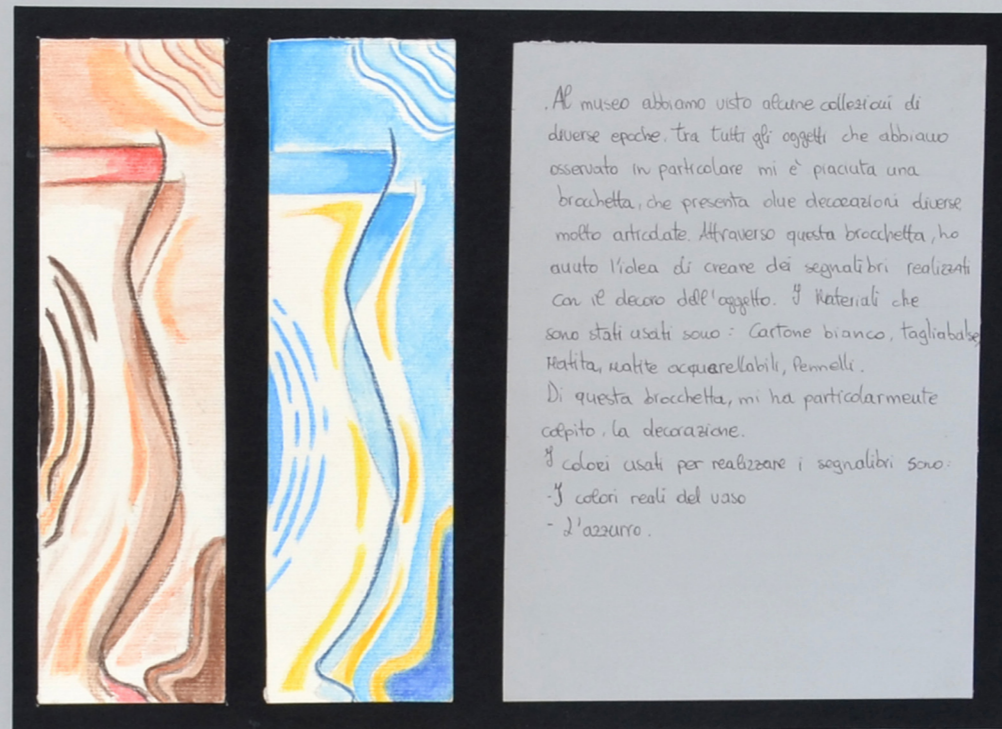 .Al museo abbiamo visto alcune collezioni di
diverse epoche. Tra tutti gli oggetti che abbiamo
osservato in particolare mi è piaciuta una
brocchetta, che presenta due decorazioni diverse
molto articolate. Attraverso questa brocchetta, ho
avuto l'idea di creare dei segnalibri realizzati
con il decoro dell'oggetto. I Materiali che
sono stati usati sono: Cartone bianco, tagliabalse,
Matita, matite acquarellabili, Pennelli.
Di questa brocchetta, mi ha particolarmente
colpito, la decorazione.
I colori usati per realizzare i segnalibri sono:
-I colori reali del vaso
- L'azzurro.